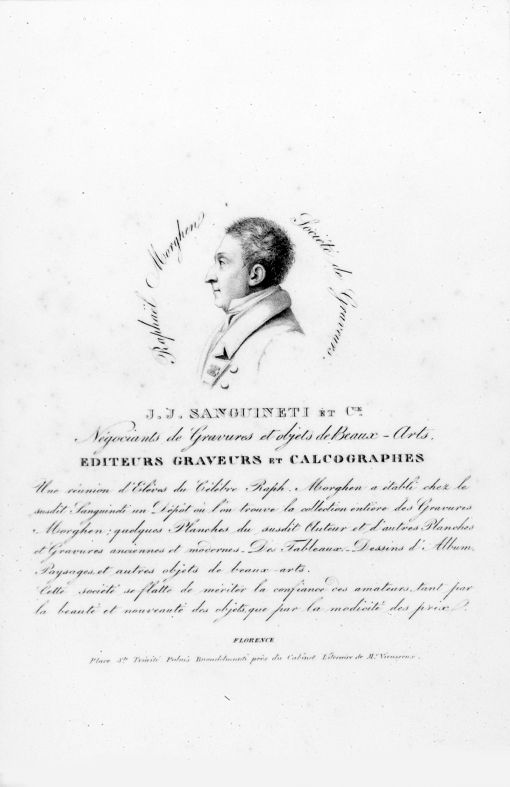 Raphaël Morghen
Société de Graveurs.
J. J. SANGUINETI ET C.IE
Négociants de Gravures et objets de Beaux-Arts.
EDITEURS GRAVEURS ET CALCOGRAPHES
Une réunion d'Elèves du Célèbre Raph. Morghen a établi chez le
susdit Sanguineti un Dépôt où l'on trouve la collection entière des Gravures
Morghen; quelques Planches du susdit Auteur et d'autres Planches
et Gravures anciennes et modernes._Des Tableaux._Dessins d'Album,
Paysages, et autres objets de beaux-arts.
Cette société se flatte de mériter la confiance des amateurs, tant par
la beauté et nouveauté des objets, que par la modicité des prix.
FLORENCE
Place S.te Trinité Palais Buondelmonti près du Cabinet Litéraire de M.r Vieusseux.